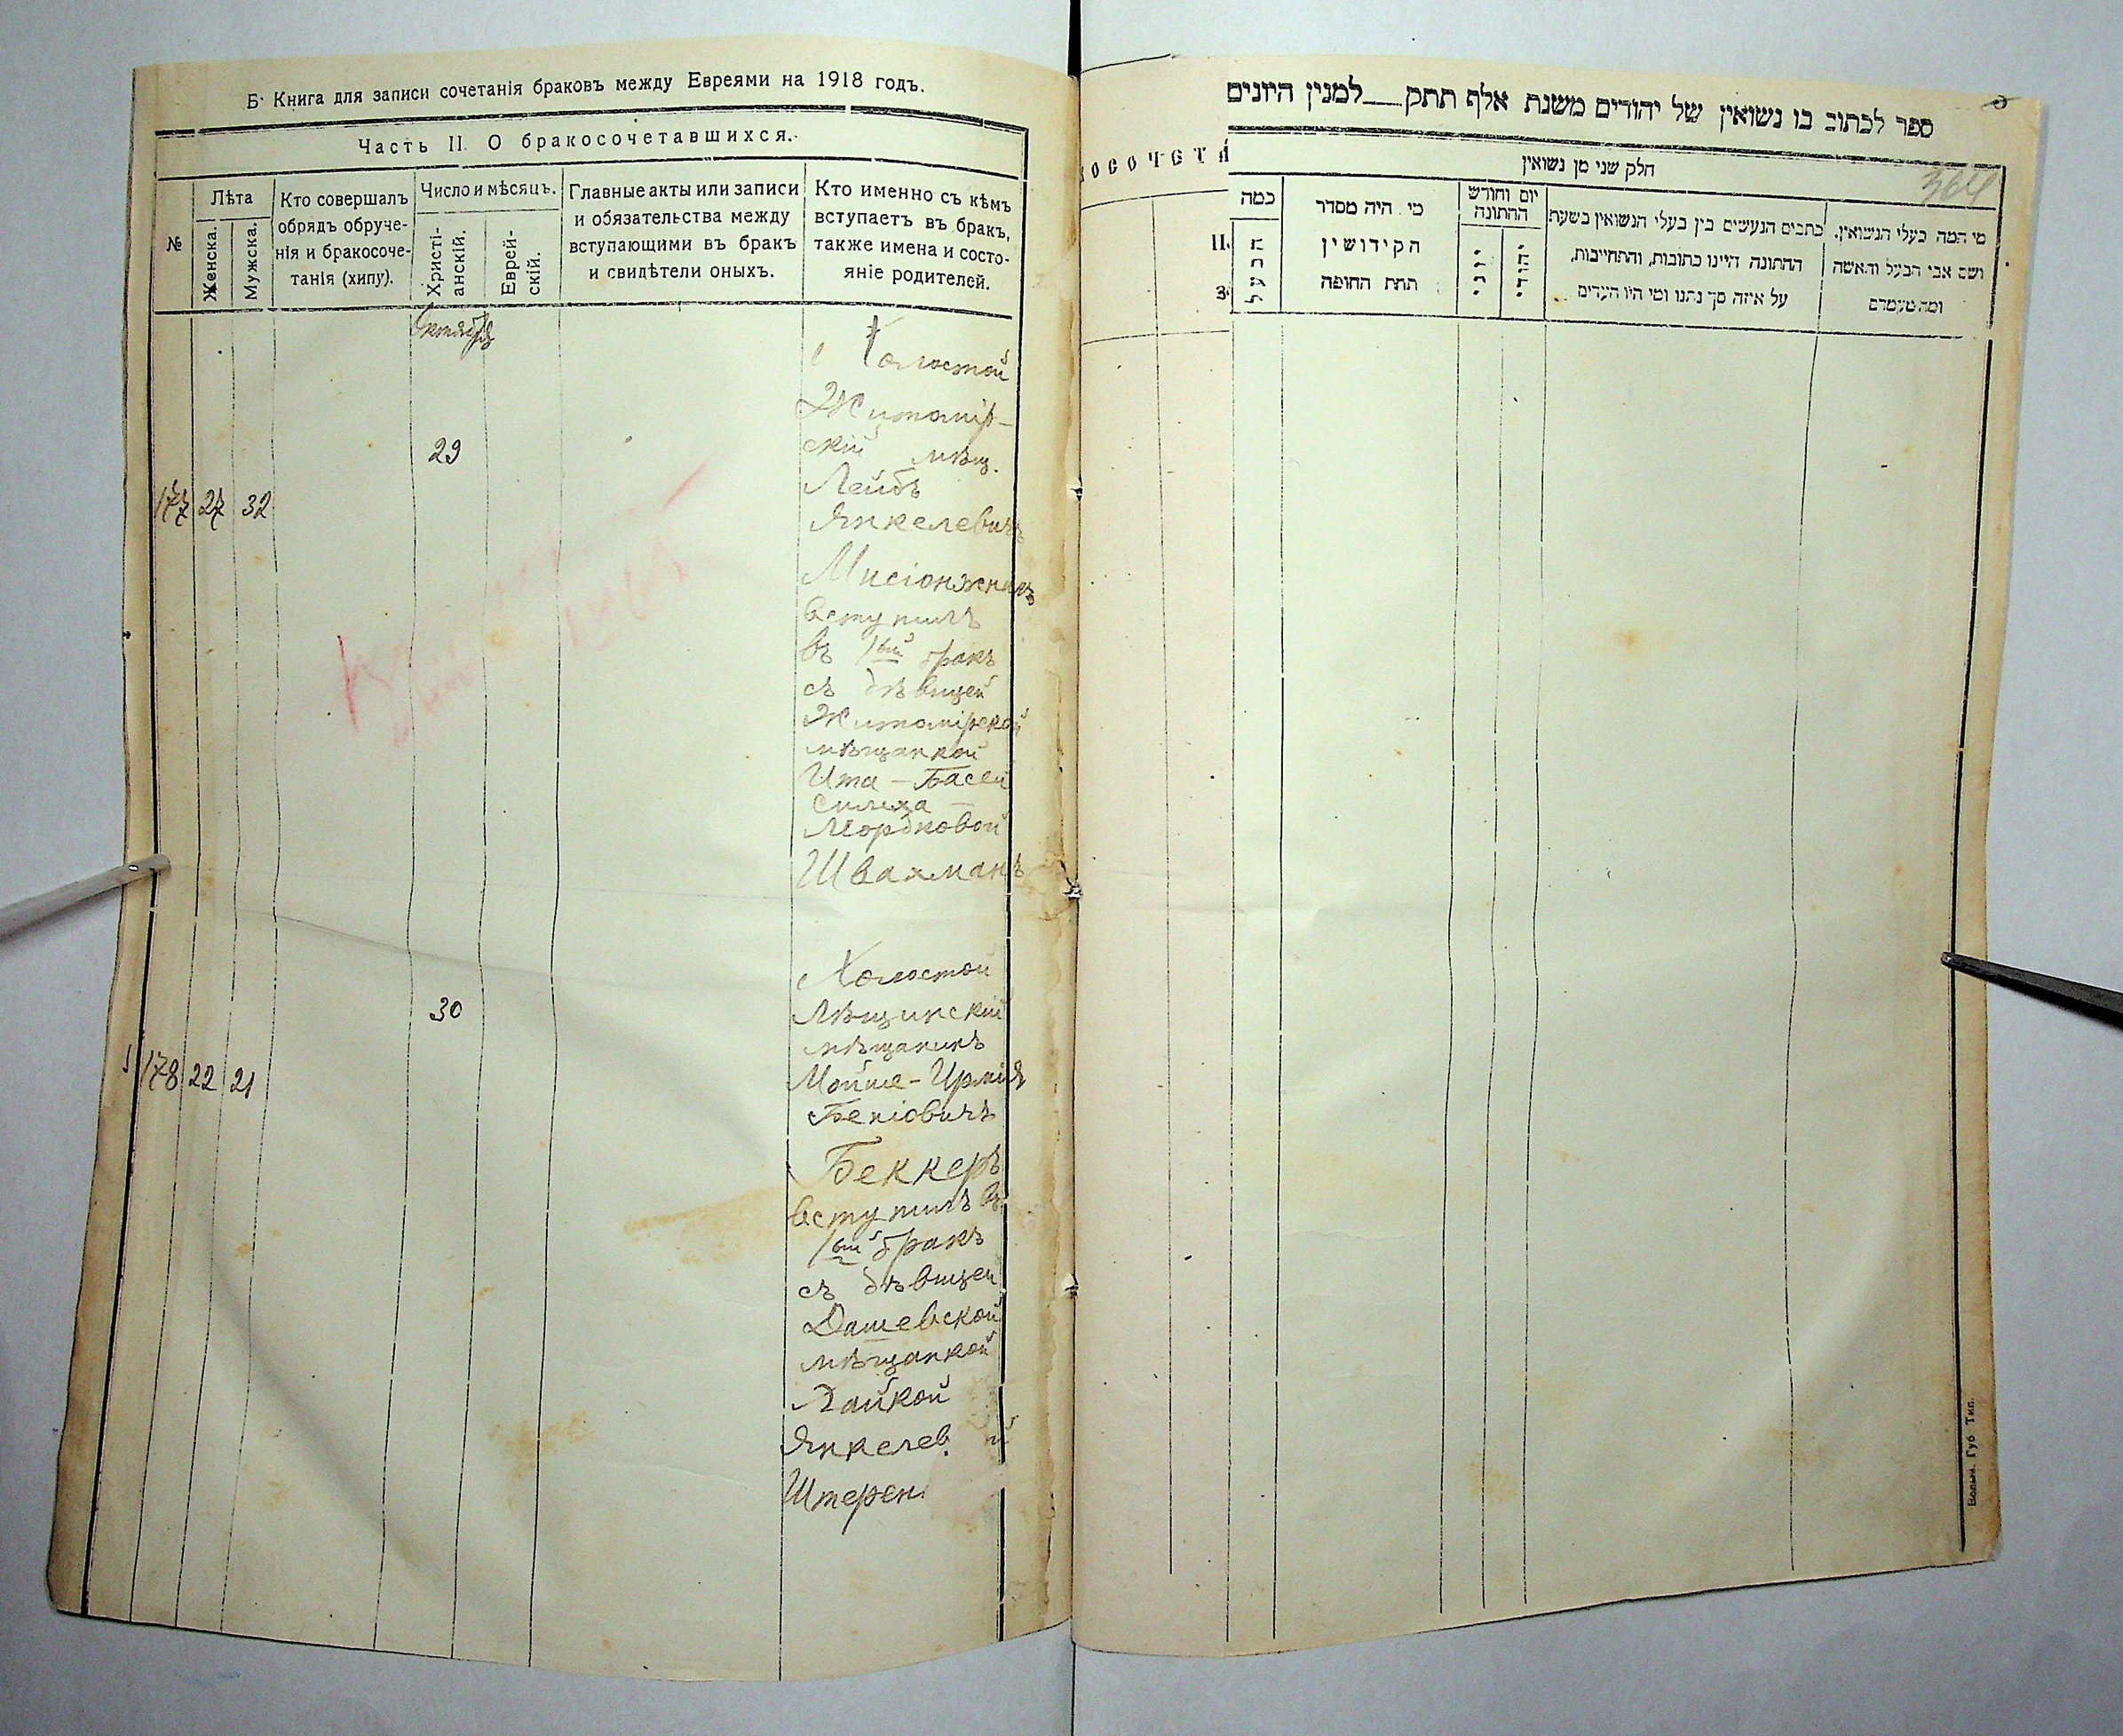 Б. Книга для записи сочетанія браковъ между Евреями на 1918 годъ.
Часть II. О бракосочетавшихся.
№
Лѣта
Женска.
Мужска.
Кто совершалъ
обрядъ обруче-
нія и бракосоче-
танія (хипу).
Число и мѣсяцъ.
Христі-
анскій.
Еврей-
скій.
Главные акты или записи
и обязательства между
вступающими въ бракъ
и свидѣтели оныхъ.
Кто именно съ кѣмъ
вступаетъ въ бракъ,
также имена и состо-
яніе родителей.
Октября
177 27 32
29
Холостой
Житомір-
скій мѣщ.
Лейбъ
Янкелевичъ
Мисіонжникъ
вступилъ
въ 1ый бракъ
съ дѣвицей
Житомірской
мѣщанкой
Ита-Басей
Мордковой
Швахманъ
178 22 21
30
Холостой
Лѣщинскій
мѣщанинъ
Мойше-Ирмія
Беніовичъ
Беккеръ
вступилъ въ
1ый бракъ
съ дѣвицей
Дашевской
мѣщанкой
Хайкой
Янкелев й
Штерен
ספר לכתוב בו נשואין של יהודים משנת אלף תתק__למנין היונים
364
осочета
II.
חלק שני מן נשואין
כמה
מי היה מסדר
הקידושין
תחת החופה
יום וחודש
החתונה
יוני
יהודי
כתבים הנעשים בין בעלי הנשואין בשעת
החתונה היינו כתובות, והתחייבות,
על איזה סך נתנו ומי היו העדים
מי המה בעלי הנשואין.
ושם אבי הבעל והאשה
ומה מעמדם
Волын. Губ Тип.